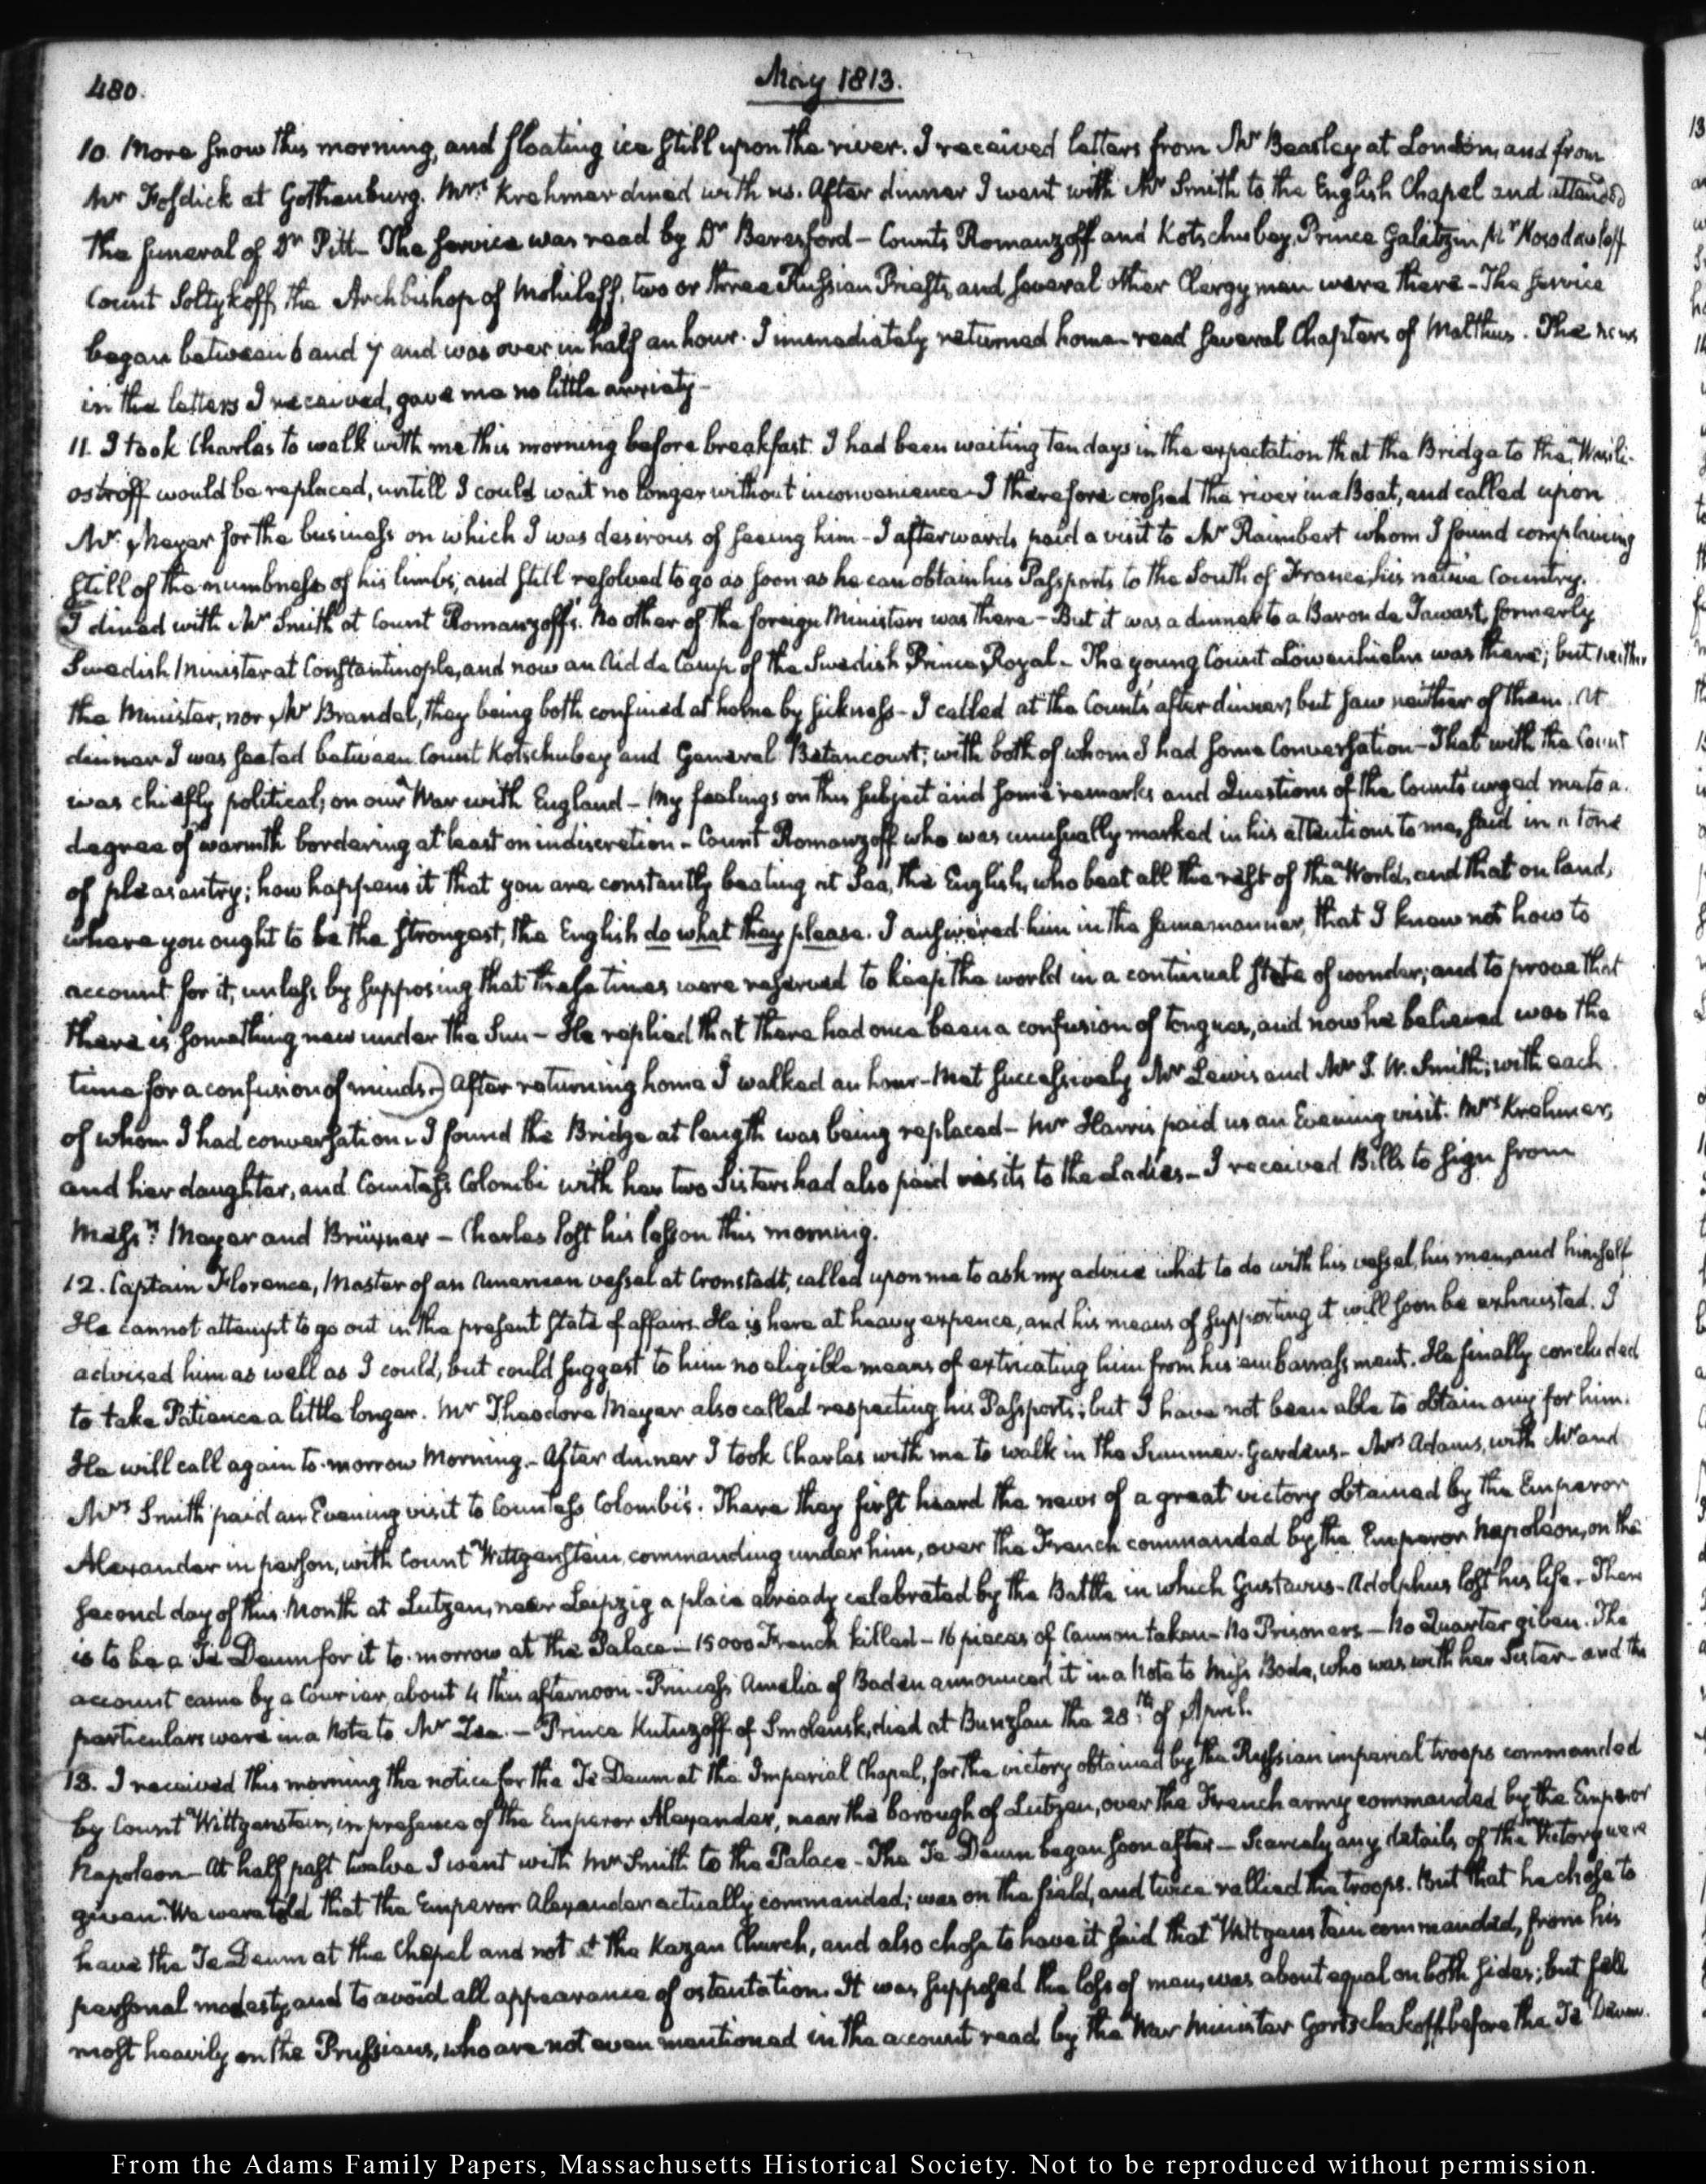 480.
May 1813.
10. More snow this morning, and floating ice still upon the river. I received letters from Mr Beasley at London, and from
Mr Fosdick at Gothenburg. Mrs Krehmer dined with us. After dinner I went with Mr Smith to the English Chapel and attended
the funeral of Dr Pitt— The service was read by Dr Beresford— Counts Romanzoff and Kotschubey, Prince Galitzin, Mr Kosodawloff
Count Soltykoff, the Archbishop of Mohileff, two or three Russian Priests, and several other Clergymen were there— The service
began between 6 and 7 and was over in half an hour. I immediately returned home— read several Chapters of Malthus. The news
in the letters I received, gave me no little anxiety—
11. I took Charles to walk with me this morning before breakfast. I had been waiting ten days in the expectation that the Bridge to the Wasili-
ostroff would be replaced, untill I could wait no longer without inconvenience— I therefore crossed the river in a Boat, and called upon
Mr. Meyer for the business on which I was desirous of seeing him— I afterwards paid a visit to Mr Raimbert whom I found complaining
still of the numbness of his limbs; and still resolved to go as soon as he can obtain his Passports to the South of France, his native Country.
I dined with Mr Smith at Count Romanzoff's. No other of the foreign Ministers was there— But it was a dinner to a Baron de Tawast, formerly
Swedish Minister at Constantinople, and now an Aid de Camp of the Swedish Prince Royal— The young Count Löwenhielm was there; but neither
the Minister, nor Mr Brandel, they being both confined at home by sickness— I called at the Counts after dinner, but saw neither of them. At
dinner I was seated between Count Kotschubey and General Betancourt; with both of whom I had some Conversation— That with the Count
was chiefly political; on our War with England— My feelings on this subject and some remarks and Questions of the Counts urged me to a
degree of warmth bordering at least on indiscretion— Count Romanzoff who was unusually marked in his attentions to me, said in a tone
of pleasantry; how happens it that you are constantly beating at Sea, the English, who beat all the rest of the World, and that on land,
where you ought to be the strongest, the English do what they please. I answered him in the same manner, that I knew not how to
account for it, unless by supposing that these times were reserved to keep the world in a continual state of wonder; and to prove that
there is something new under the Sun— He replied that there had once been a confusion of tongues, and now he believed was the
time for a confusion of minds.—) After returning home I walked an hour— Met successively Mr Lewis and Mr J. W. Smith; with each
of whom I had conversation— I found the Bridge at length was being replaced— Mr Harris paid us an Evening visit. Mrs Krehmer,
and her daughter, and Countess Colombi with her two Sisters had also paid visits to the Ladies— I received Bills to sign from
Messrs Meyer and Brüxner— Charles lost his lesson this morning.
12. Captain Florence, Master of an American vessel at Cronstadt, called upon me to ask my advice what to do with his vessel, his men, and himself
He cannot attempt to go out in the present state of affairs. He is here at heavy expence, and his means of supporting it will soon be exhausted. I
advised him as well as I could, but could suggest to him no eligible means of extricating him from his embarrassment. He finally concluded
to take Patience a little longer. Mr Theodore Meyer also called respecting his Passports; but I have not been able to obtain any for him.
He will call again to-morrow Morning.— After dinner I took Charles with me to walk in the Summer-Gardens— Mrs Adams, with Mr and
Mrs Smith paid an Evening visit to Countess Colombi's. There they first heard the news of a great victory obtained by the Emperor
Alexander in person, with Count Wittgenstein, commanding under him, over the French commanded by the Emperor Napoleon, on the
second day of this Month at Lutzen, near Leipzig a place already celebrated by the Battle in which Gustavus-Adolphus lost his life— There
is to be a Te Deum for it to-morrow at the Palace— 15000 French killed— 16 pieces of Cannon taken— No Prisoners— No Quarter given. The
account came by a Courier, about 4 this afternoon— Princess Amelia of Baden announced it in a Note to Miss Bode, who was with her Sister— and the
particulars were in a Note to Mr Zea.— Prince Kutuzoff of Smolensk, died at Bunzlau the 28th of April.
13. I received this morning the notice for the Te Deum at the Imperial Chapel, for the victory obtained by the Russian imperial troops commanded
by Count Wittgenstein, in presence of the Emperor Alexander, near the borough of Lutzen, over the French army commanded by the Emperor
Napoleon— At half past twelve I went with Mr Smith to the Palace— The Te Deum began soon after— Scarcely any details of the Victory were
given. We were told that the Emperor Alexander actually commanded; was on the field, and twice rallied the troops. But that he chose to
have the Te Deum at the Chapel and not at the Kazan Church, and also chose to have it said that Wittgenstein commanded, from his
personal modesty, and to avoid all appearance of ostentation. It was supposed the loss of men, was about equal on both sides; but fell
most heavily on the Prussians, who are not even mentioned in the account read by the War Minister Gortschakoff before the Te Deum.
From the Adams Family Papers, Massachusetts Historical Society. Not to be reproduced without permission.